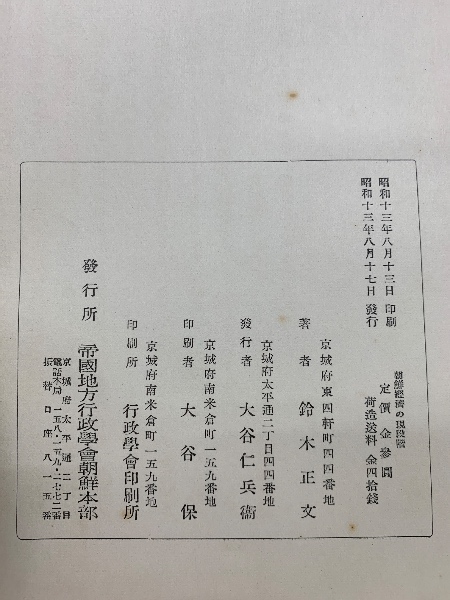 朝鮮經濟の現段階
定價 金參圓
荷造送料 金四拾錢
昭和十三年八月十三日 印刷
昭和十三年八月十七日 發行
京城府東四軒町四四番地
著者 鈴木正文
京城府太平通二丁目四四番地
發行者 大谷仁兵衞
京城府南米倉町一五九番地
印刷者 大谷保
京城府南米倉町一五九番地
印刷所 行政學會印刷所
發行所 帝國地方行政學會朝鮮本部
京城府太平通二丁目
振替口座